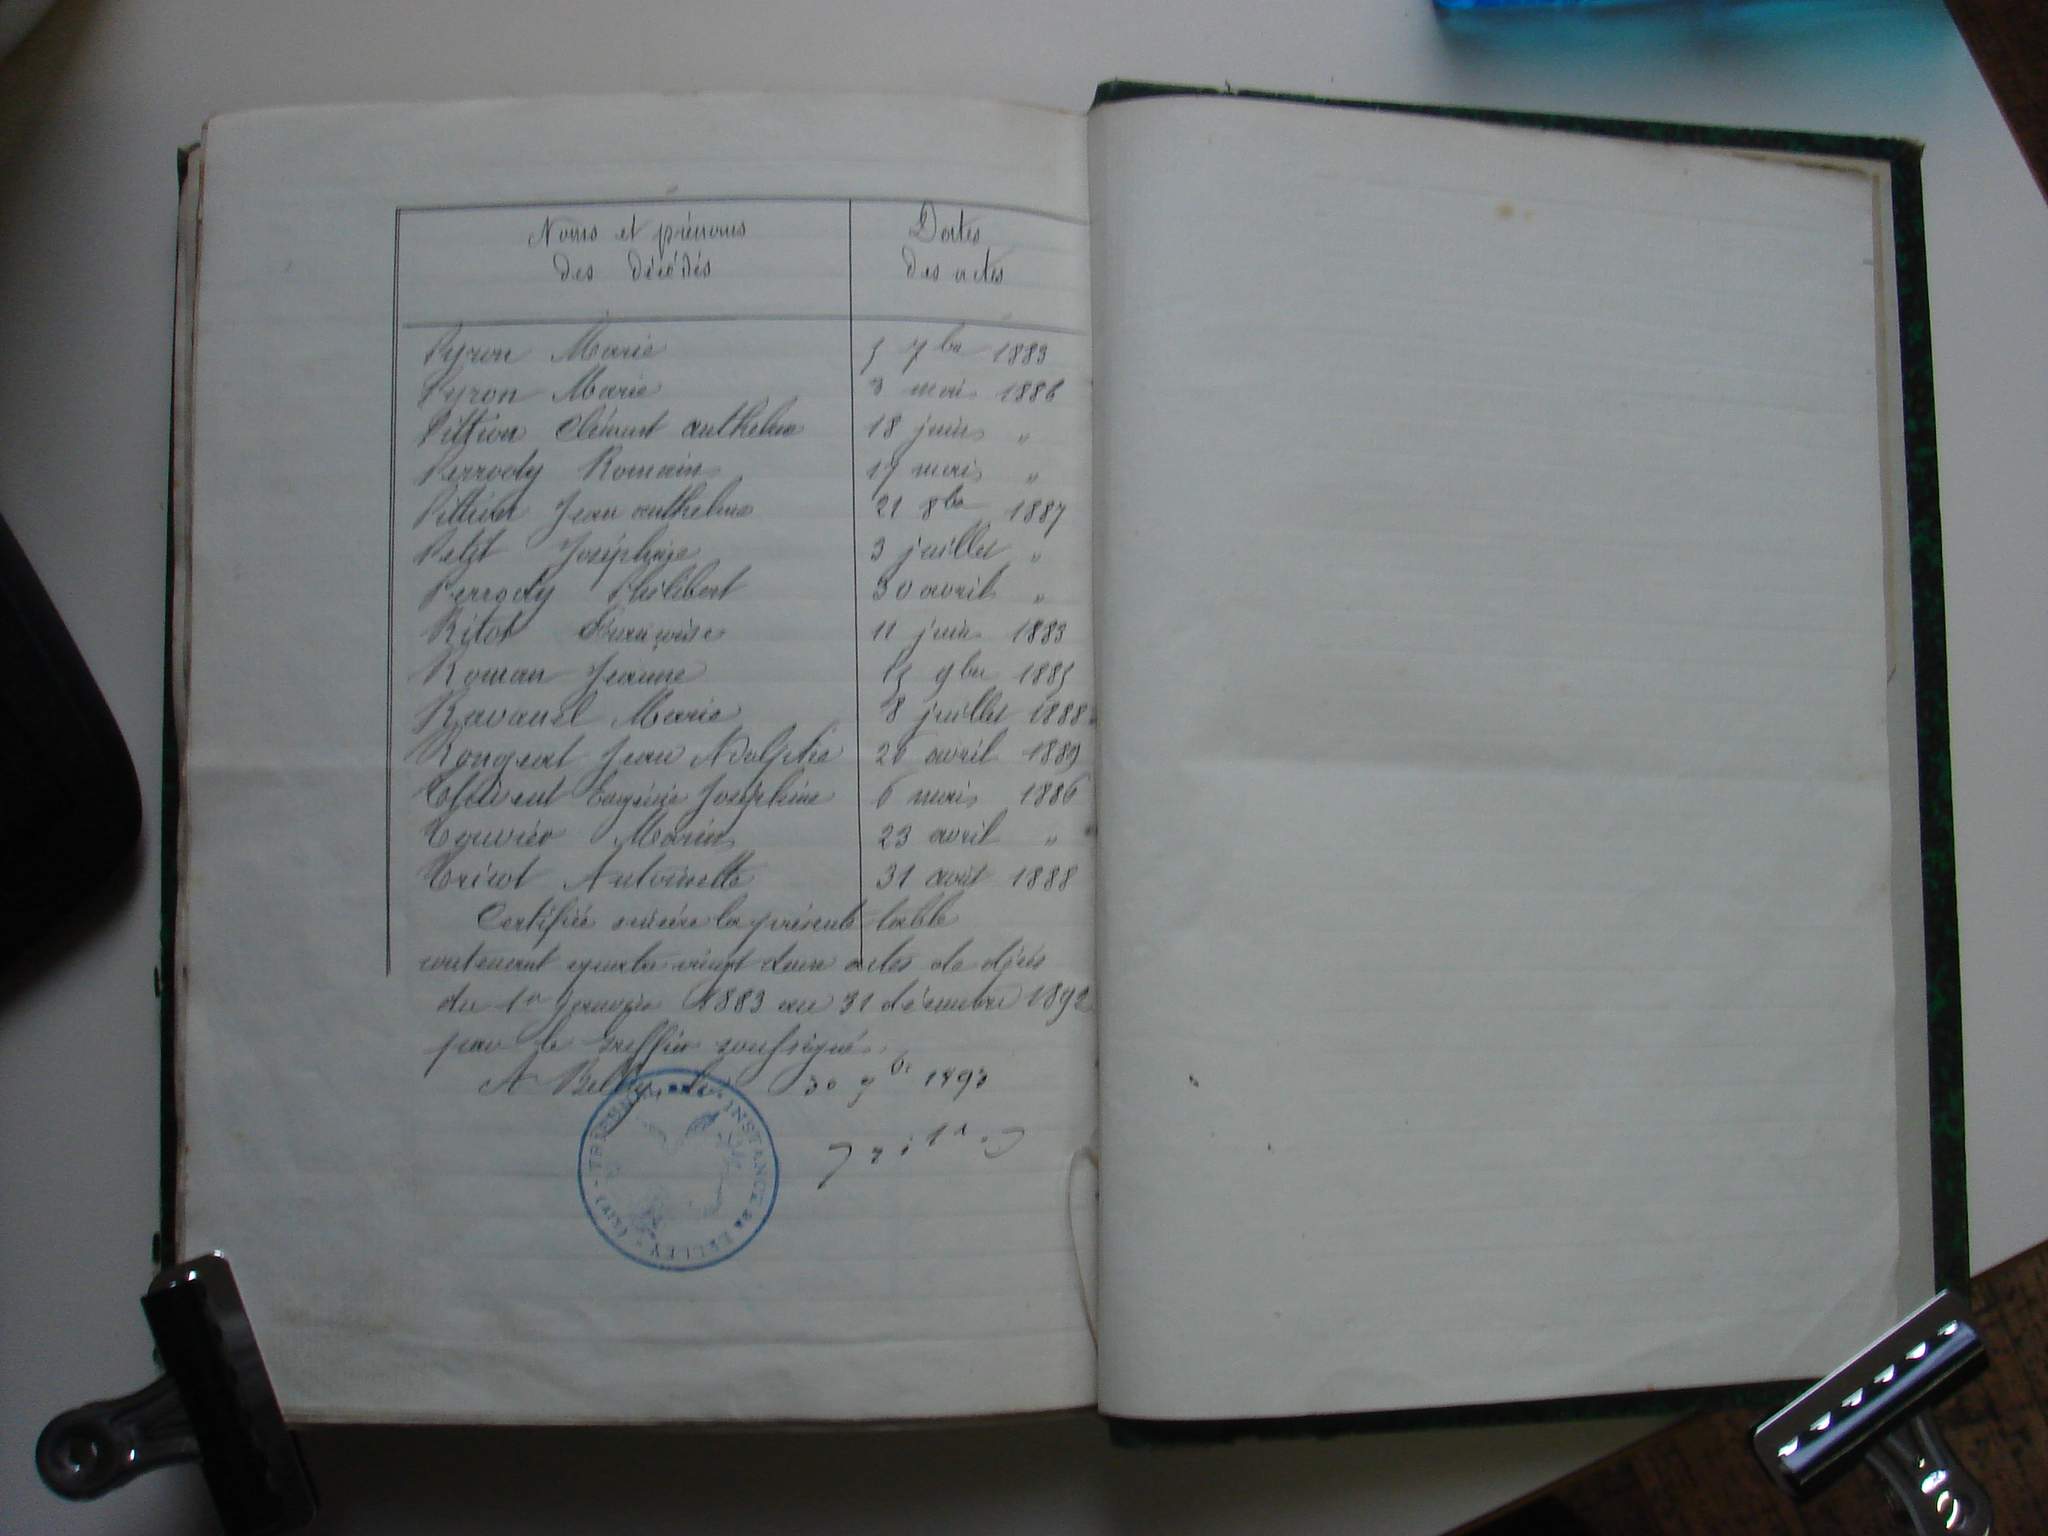 Noms et prénoms
des décédés
Dates
des actes
Pyron Marie 5 7bre 1883
Pyron Marie 3 mai 1886
Pittion Clément anthelme 18 juin "
Perrody Romain 17 mars "
Pittion Jean anthelme 21 8bre 1887
Petit Joséphine 3 juillet "
Perrody Philibert 30 avril "
Ritot Françoise 11 juin 1883
Roman Jeanne 15 9bre 1885
Ravanel Marie 8 juillet 1888
Rongeat Jean Adolphe 26 avril 1889
Eugénie Joséphine 6 mars 1886
Touvier Marin 23 avril "
Tricot Antoinette 31 août 1888
Certifiée sincère la présente table
contenant quatre vingt deux actes de décès
du 1er janvier 1883 au 31 décembre 1892
par le greffier soussigné.
A Belley, le 30 1893
TRIBUNAL INSTANCE DE BELLEY (AIN)